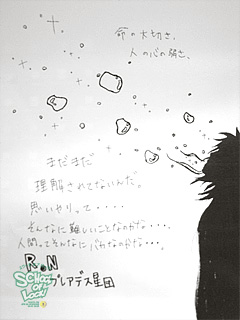 命の大切さ、
人の心の弱さ、
まだまだ
理解されてないんだ。
思いやりって・・・・
そんなに難しいことなのかな・・・、
人間ってそんなにバカなのかな・・・。
R.N
プレアデス星団
SCHOOL OF LOCK!